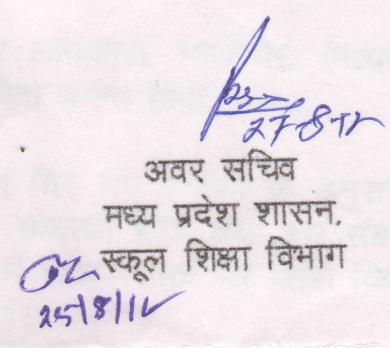 27-8-12
अवर सचिव
मध्य प्रदेश शासन,
स्कूल शिक्षा विभाग
25/8/12